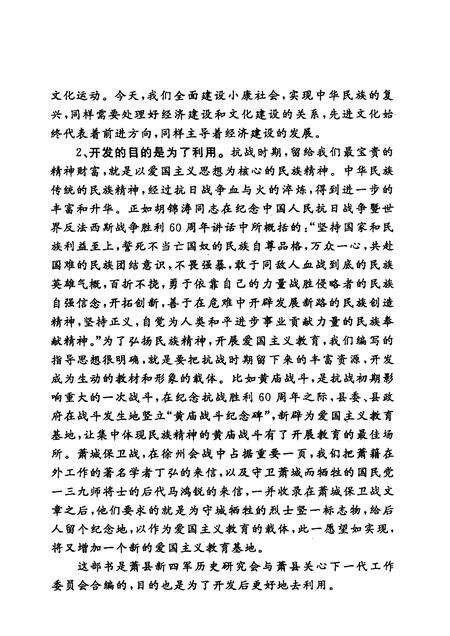 文化运动。今天，我们全面建设小康社会，实现中华民族的复
兴，同样需要处理好经济建设和文化建设的关系，先进文化始
终代表着前进方向，同样主导着经济建设的发展。
2、开发的目的是为了利用。抗战时期，留给我们最宝贵的
精神财富，就是以爱国主义思想为核心的民族精神。中华民族
传统的民族精神，经过抗日战争血与火的淬炼，得到进一步的
丰富和升华。正如胡锦涛同志在纪念中国人民抗日战争暨世
界反法西斯战争胜利60周年讲话中所概括的：“坚持国家和民
族利益至上，誓死不当亡国奴的民族自尊品格，万众一心，共赴
国难的民族团结意识，不畏强暴，敢于同敌人血战到底的民族
英雄气概，百折不挠，勇于依靠自己的力量战胜侵略者的民族
自强信念，开拓创新，善于在危难中开辟发展新路的民族创造
精神，坚持正义，自觉为人类和平进步事业贡献力量的民族奉
献精神。”为了弘扬民族精神，开展爱国主义教育，我们编写的
指导思想很明确，就是要把抗战时期留下来的丰富资源，开发
成为生动的教材和形象的载体。比如黄庙战斗，是抗战初期影
响重大的一次战斗，在纪念抗战胜利60周年之际，县委、县政
府在战斗发生地竖立“黄庙战斗纪念碑”，新辟为爱国主义教育
基地，让集中体现民族精神的黄庙战斗有了开展教育的最佳场
所。萧城保卫战，在徐州会战中占据重要一页，我们把萧籍在
外工作的著名学者丁弘的来信，以及守卫萧城而牺牲的国民党
一三九师将士的后代马鸿锐的来信，一并收录在萧城保卫战文
章之后，他们要求的就是为守城牺牲的烈士竖一标志物，给后
人留个纪念地，以作为爱国主义教育的载体，此一愿望如实现，
将又增加一个新的爱国主义教育基地。
这部书是萧县新四军历史研究会与萧县关心下一代工作
委员会合编的，目的也是为了开发后更好地去利用。